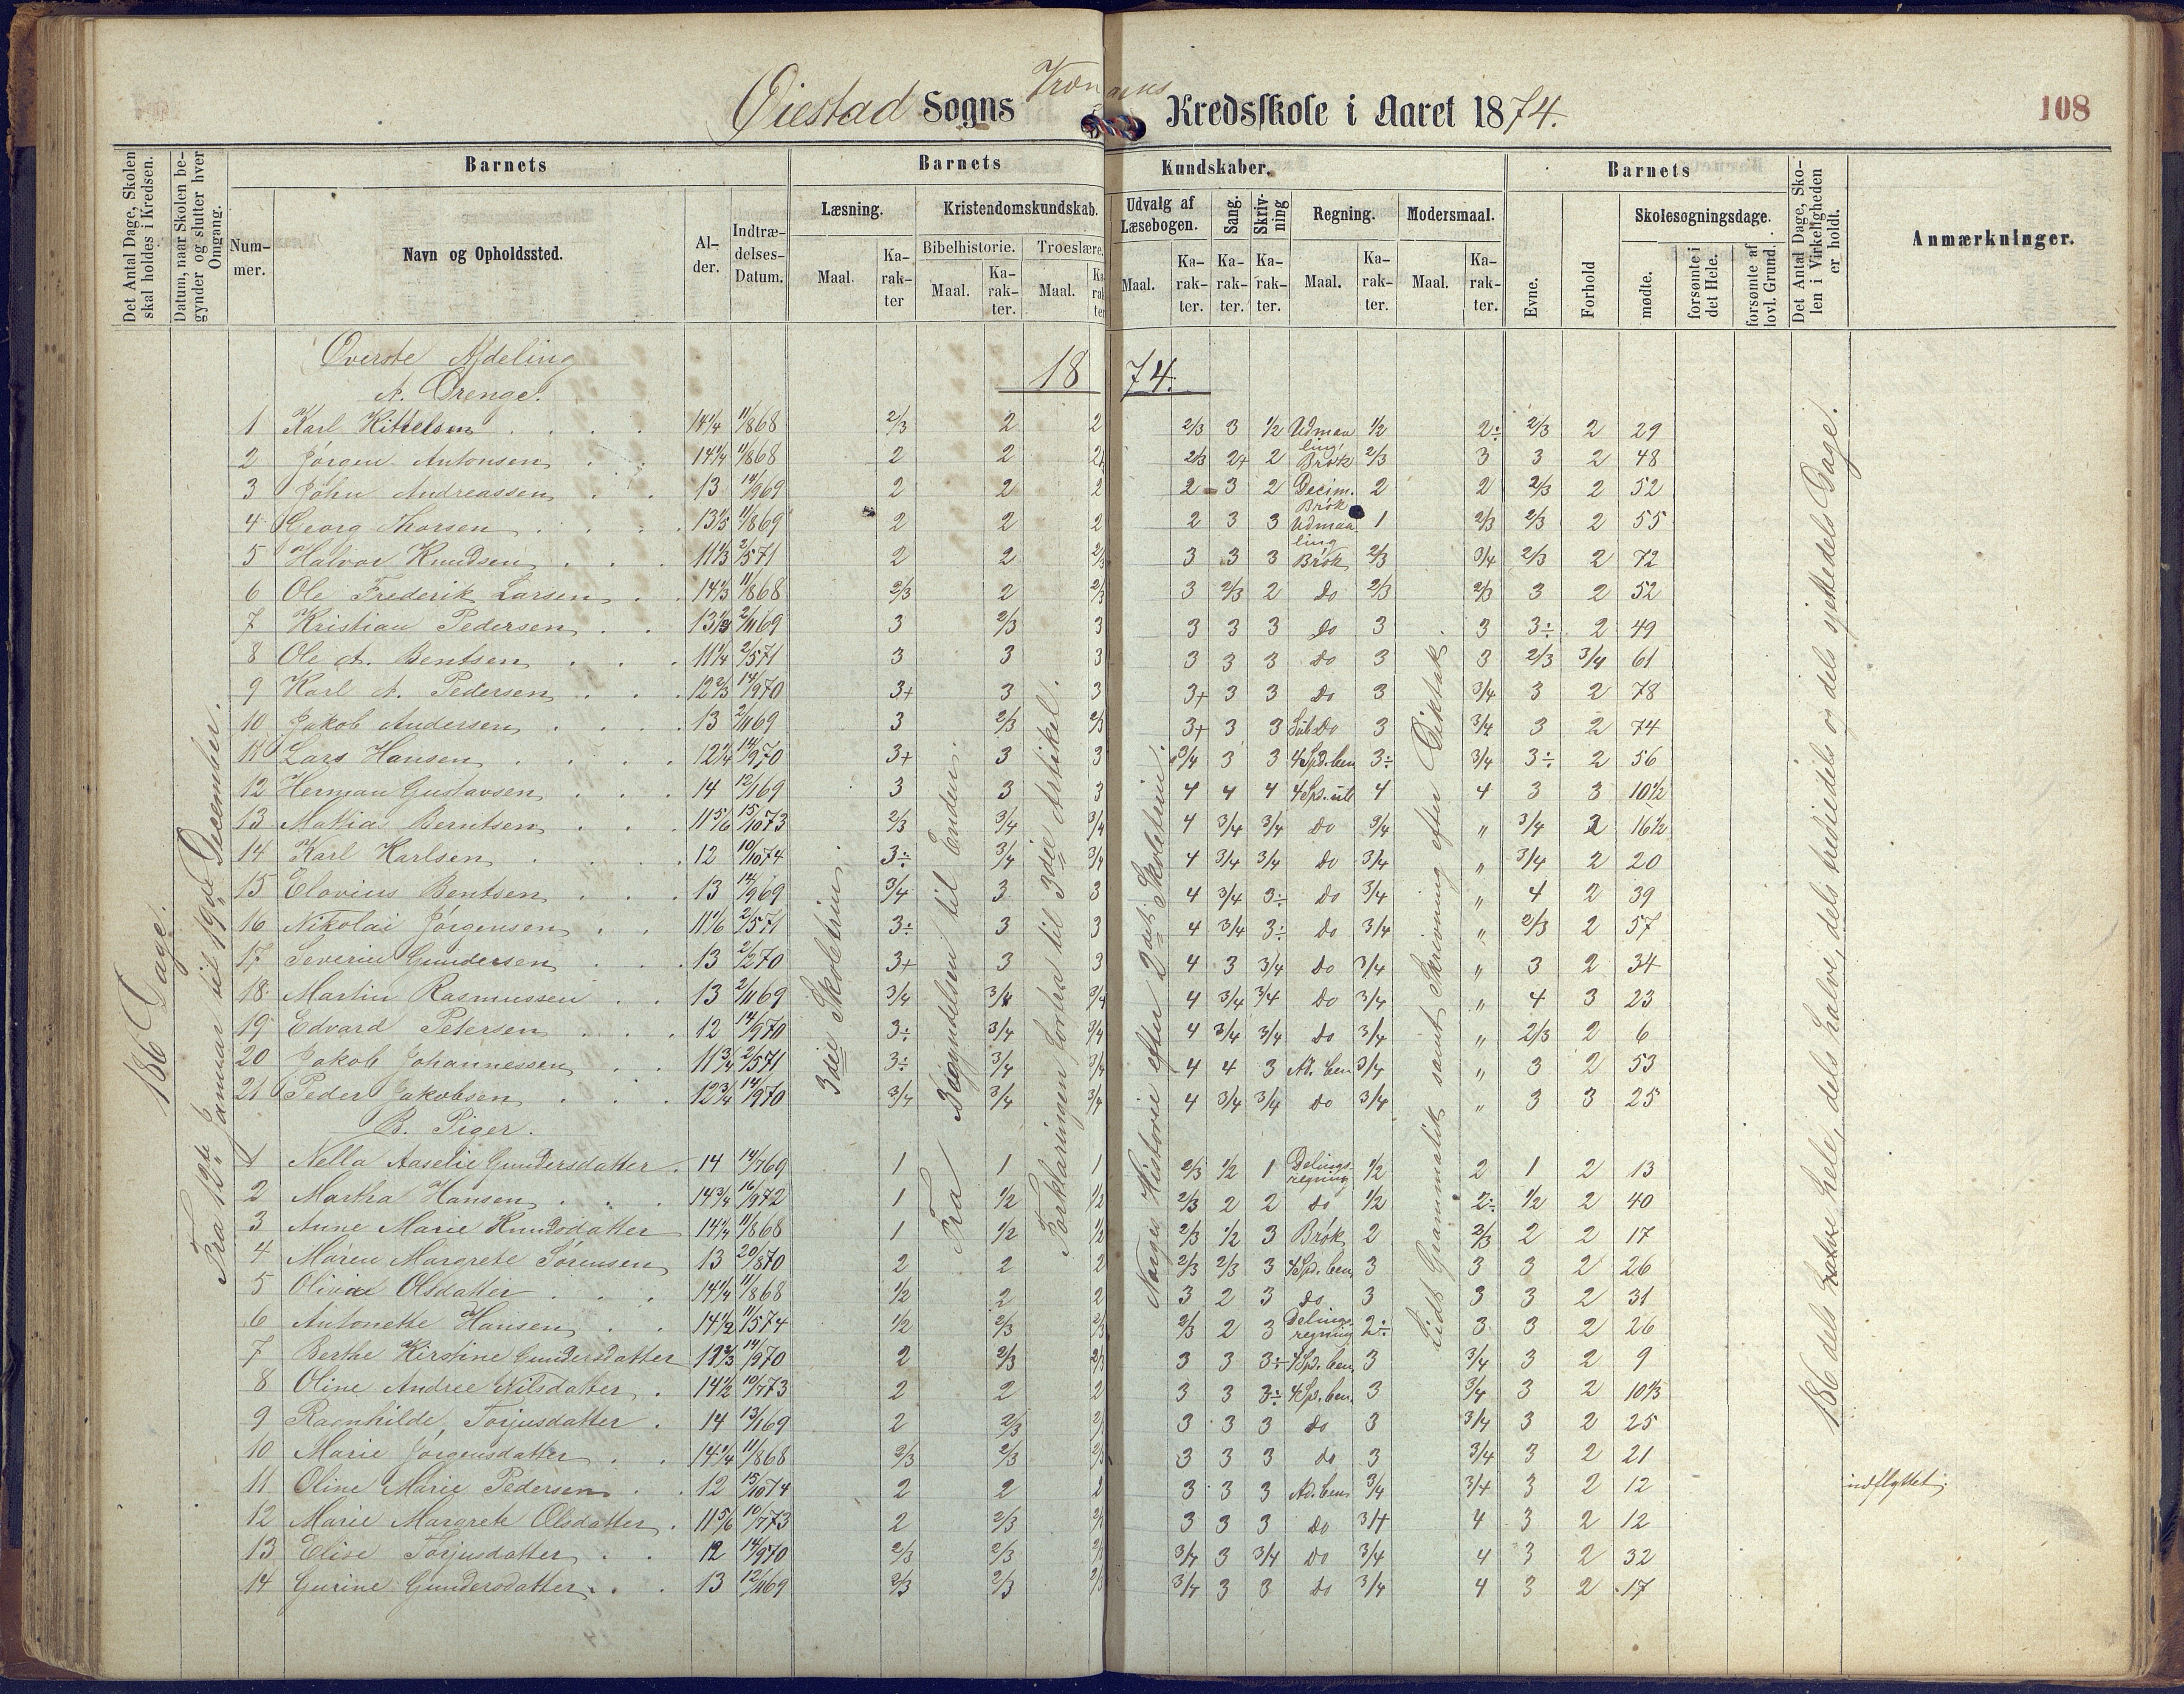 Øiestad Sogns Kredsskole i Aaret 1874.
108
Det Antal Dage, Skolen skal holdes i Kredsen.
Datum, naar Skolen begynder og slutter hver Omgang.
Barnets
Barnets Kundskaber.
Barnets
Det Antal Dage, Skolen i Virkeligheden er holdt.
Anmærkninger.
Nummer.
Navn og Opholdssted.
Alder.
Indtrædelses-Datum.
Læsning.
Kristendomskundskab.
Udvalg af Læsebogen.
Sang.
Skrivning
Regning.
Modersmaal.
Evne.
Forhold
Skolesøgningsdage.
Bibelhistorie.
Troeslære.
Maal.
Karakter
Maal.
Karakter.
Maal.
Karakter
Maal.
Karakter.
Karakter.
Karakter.
Maal.
Karakter.
Maal.
Karakter.
mødte.
forsømte i det Hele.
forsømte af lovl. Grund.
Øverste Afdeling
18 74.
A. Drenge.
1 Karl Kittelsen 14 1/4 11/8 68 2/3 2 2 2/3 3 1/2 Udmaaling 1/2 2÷ 2/3 2 29
2 Jørgen Antonsen 14 1/4 11/8 68 2 2 2/3 2+ 2 Brøk 2/3 3 3 2 48
3 John Andreassen 13 14/9 69 2 2 2 2 3 2 Decim. Brøk 2 2 2/3 2 52
4 Georg Thorsen 13 1/3 11/8 69 2 2 2 2 3 3 Udmaaling 1 2/3 2/3 2 55
5 Halvor Knudsen 11 1/3 2/5 71 2 2 2/3 3 3 3 Brøk 2/3 3/4 2/3 2 72
6 Ole Frederik Larsen 14 1/3 11/8 68 2/3 2 2/3 3 2/3 2 do 2/3 2/3 3 2 52
7 Kristian Pedersen 13 1/3 2/11 69 3 2/3 3 3 3 3 do 3 3 3÷ 2 49
8 Ole A. Bentsen 11 1/4 2/5 71 3 3 3 3 3 3 do 3 3 2/3 3/4 61
9 Karl A. Pedersen 12 2/3 14/9 70 3+ 3 3 3+ 3 3 do 3 3/4 3 2 78
10 Jakob Andersen 13 2/11 69 3 2/3 2/3 3+ 3 3 Do 3 3/4 3 2 74
11 Lars Hansen 12 1/4 14/9 70 3+ 3 3 3/4 3 3 4 Spd. ben 3÷ 3/4 3÷ 2 56
12 Herman Gustavsen 14 12/1 69 3 3 3 4 4 4 4 Spd. ub 4 4 3 3 10 1/2
13 Matias Berntsen 11 5/6 15/10 73 2/3 3/4 3/4 4 3/4 3/4 Do 3/4 " 3/4 2 16 1/2
14 Karl Karlsen 12 10/10 74 3÷ 3/4 3/4 4 3/4 3/4 Do 3/4 " 3/4 2 20
15 Elovius Bentsen 13 14/9 69 3/4 3 3 4 3/4 3÷ Do 3/4 " 4 2 39
16 Nikolai Jørgensen 11 1/6 2/5 71 3÷ 3 3 4 3/4 3÷ Do 3/4 " 2/3 2 57
17 Severin Gundersen 13 2/2 70 3+ 3 3 4 3 3/4 Do 3/4 " 3 2 34
18 Martin Rasmussen 13 2/11 69 3/4 3/4 3/4 4 3/4 3/4 Do 3/4 " 4 3 23
19 Edvard Petersen 12 14/9 70 3÷ 3/4 3/4 4 3/4 3/4 Do 3/4 " 2/3 2 6
20 Jakob Johannessen 11 3/4 2/5 71 3÷ 3/4 3/4 4 4 3 Ad. ben 3/4 " 3 2 53
21 Peder Jakobsen 12 3/4 14/9 70 3/4 3/4 3/4 4 3/4 3/4 Do 3/4 " 3 3 25
B. Piger.
1 Nella Aaselie Gundersdatter 14 14/7 69 1 1 1 2/3 1/2 1 Delingsregning 1/2 2 1 2 13
2 Martha Hansen 14 3/4 16/9 72 1 1/2 1/2 2/3 2 2 do 1/2 2÷ 1/2 2 40
3 Anne Marie Knudsdatter 14 1/4 11/8 68 1 1/2 1/2 2/3 1/2 3 Brøk 2 2/3 2 2 17
4 Maren Margrete Sørensen 13 20/8 70 2 2 2 2/3 2/3 3 4 Spd. ben 3 3 3 2 26
5 Olivia Olsdatter 14 1/4 11/8 68 1/2 2 2 3 2 3 do 3 3 3 2 31
6 Antonette Hansen 14 1/2 11/5 74 1/2 2/3 2/3 2/3 2 3 Delingsregning 2÷ 3 3 2 26
7 Berthe Kirstine Gundersdatter 14/9 70 2 2/3 2/3 3 3 3÷ 4 Spd. ben 3 3/4 3 2 9
8 Oline Andree Nilsdatter 14 1/2 10/7 73 2 2 2 3 3 3÷ 4 Spd. ben. 3 3/4 3 2 10 1/3
9 Ragnhilde Torjusdatter 14 13/1 69 2 2/3 3 3 3 do 3 3/4 3 2 25
10 Marie Jørgensdatter 14 1/4 11/8 68 2/3 2/3 2/3 3 3 3 do 3 3/4 3 2 21
11 Oline Marie Pedersen 12 15/10 74 2 2 2 3 3 3 Ad. ben 3/4 3/4 3 2 12 indflyttet.
12 Marie Margrete Olsdatter 11 5/6 10/7 73 2 2/3 3 3 3 do 3/4 4 3 2 12
13 Elise Torjusdatter 12 14/9 70 2/3 2/3 3/4 3 3/4 Do 3/4 4 3 2 32
14 Gurine Gundersdatter 13 12/11 69 2/3 2/3 2/3 3/4 3 3 Do 3/4 4 3 2 17
186 Dage.
Fra 12te Januar til 19de December.
3die Skoletrin.
Fra Begyndelsen til Enden.
Forklaringen forfra til 3die Artikel.
Norges Historie efter 2det Skoletrin.
Lidt Grammatik samt Skrivning efter Diktat.
186 dels hele, dels halve, dels trediedels og dels sjettedels Dage.